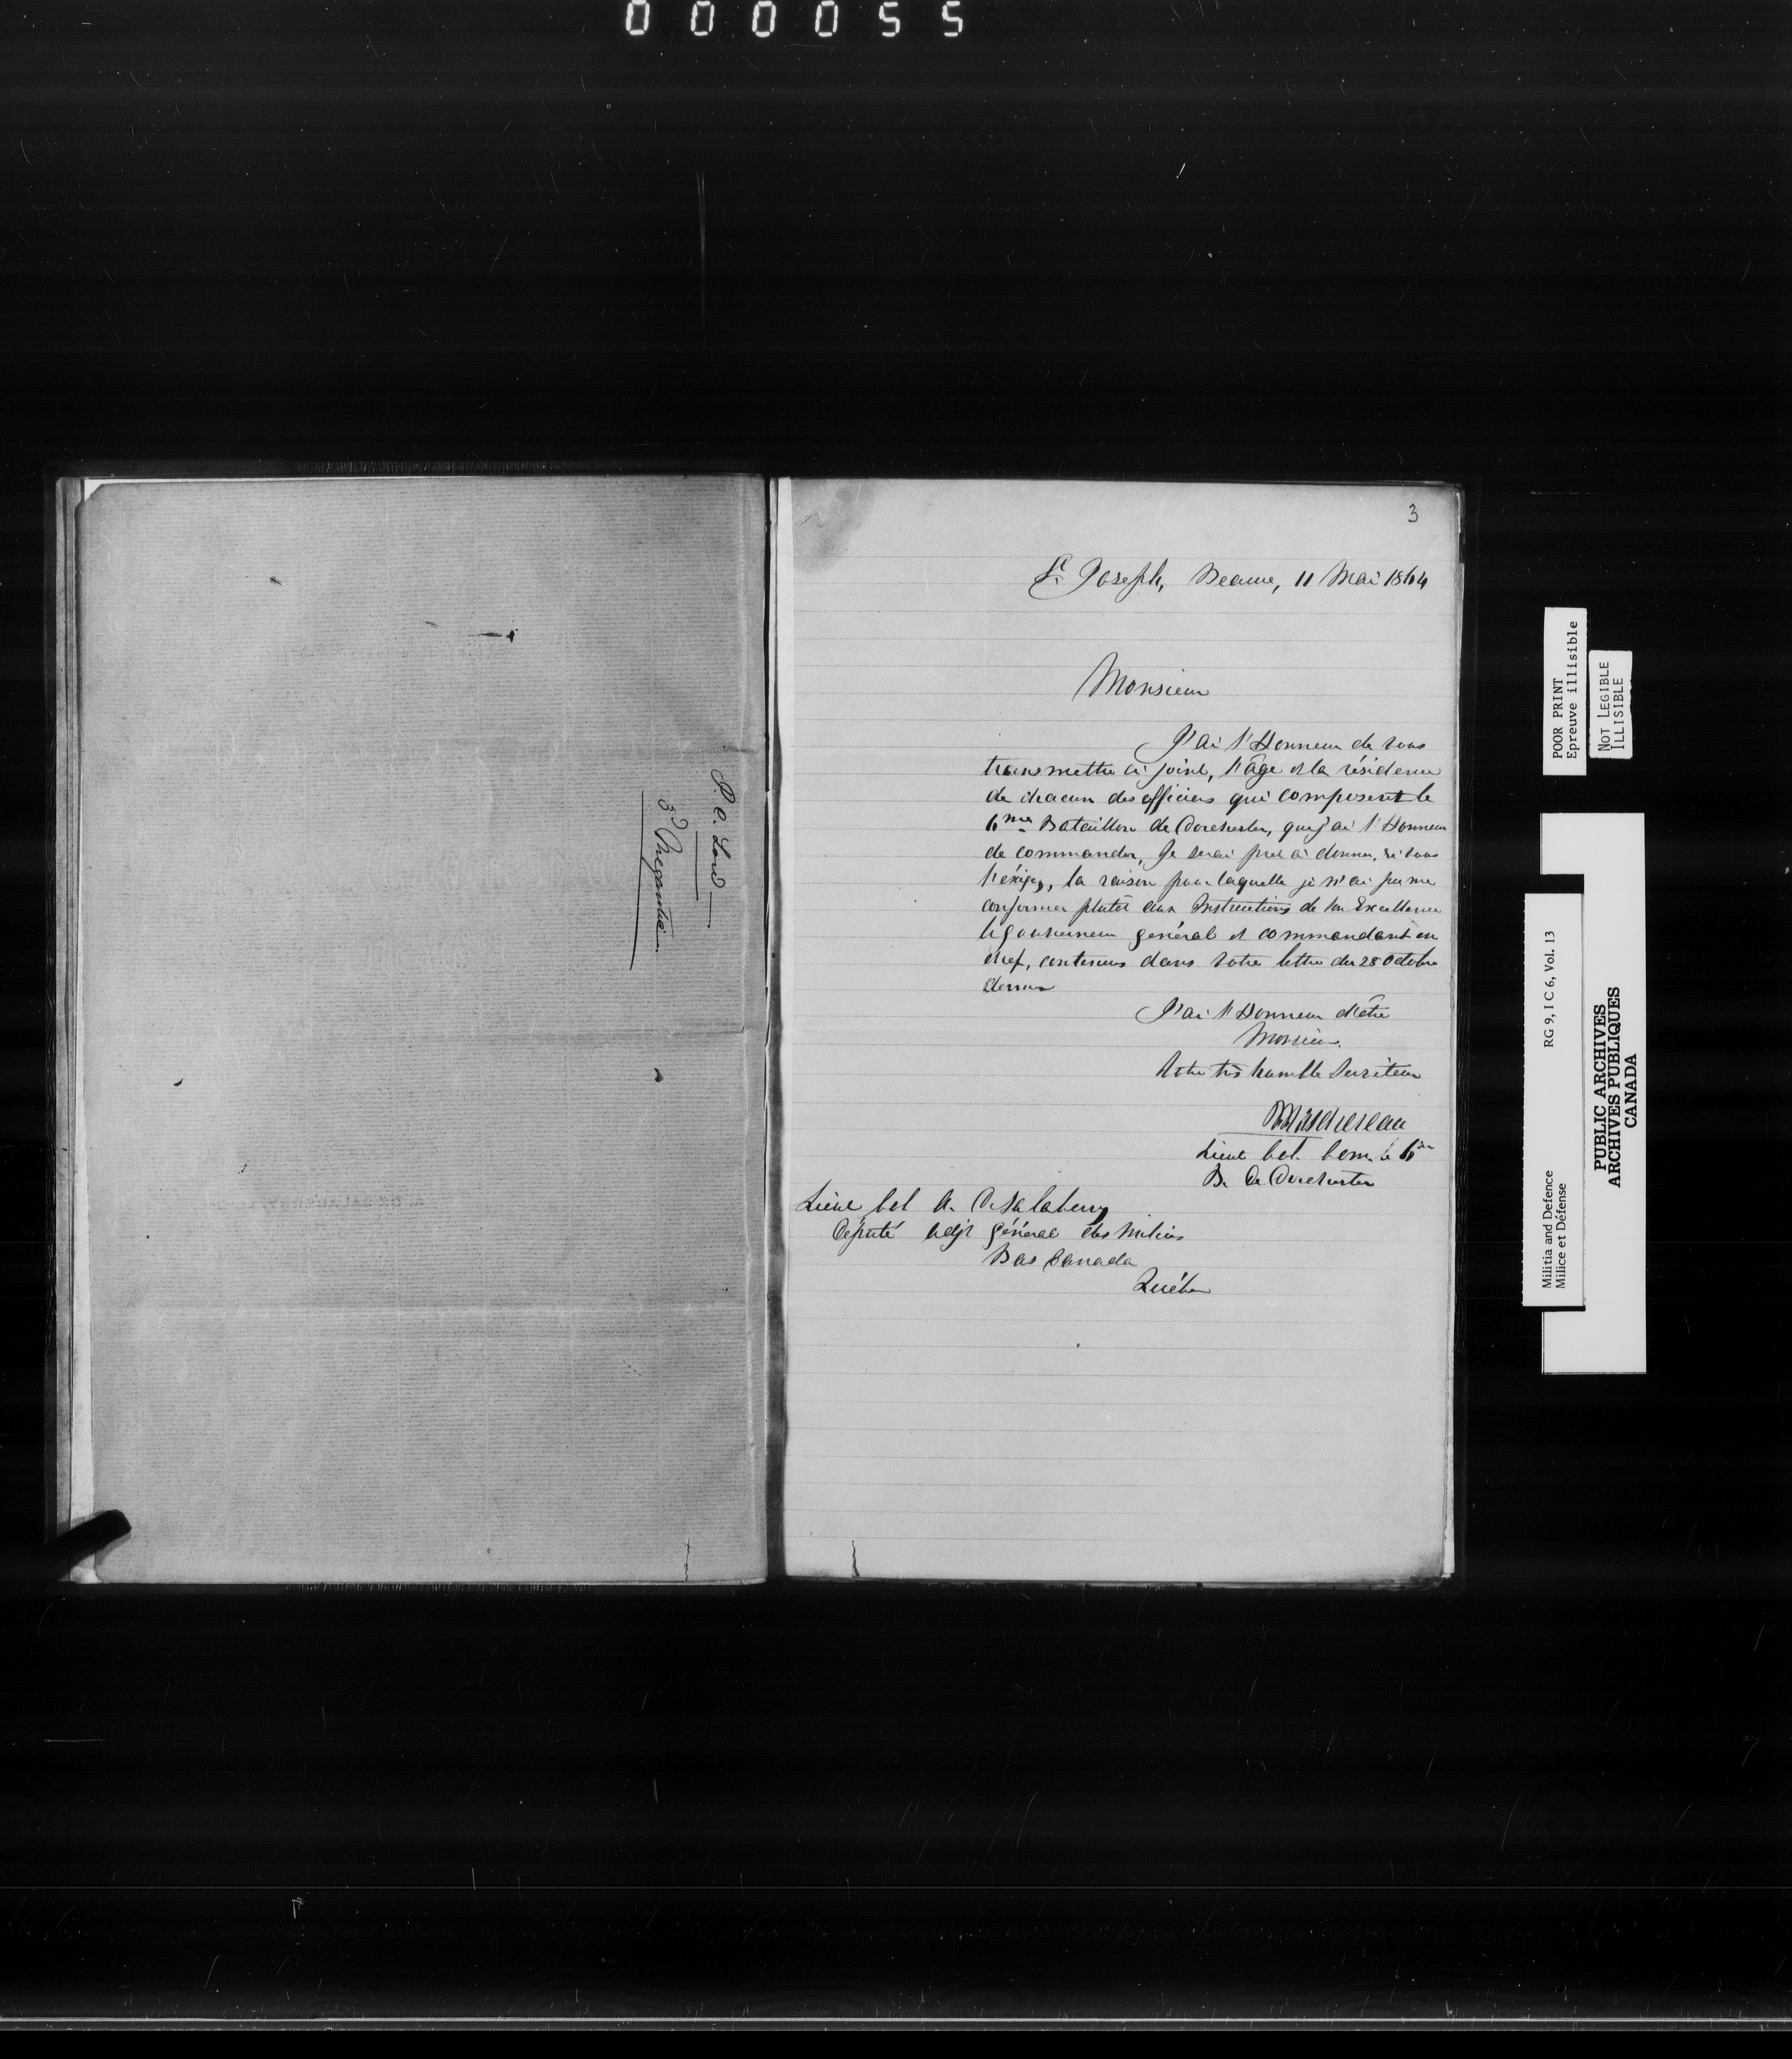 000055
P. O. Lord
3d Megantic
3
St Joseph, Beauce, 11 Mai 1864
Monsieur
J'ai l'Honneur de vous
transmettre ci joint, l'âge et la résidence
de chacun des officiers qui composent le
6me Bataillon de Dorchester, que j'ai l'Honneur
de commander, Je serai pret à donner, si vous
l'éxigez, la raison pour laquelle je n'ai pu me
conformer plutôt aux Instructions de Son Excellence
le gouverneur général et commandant en
chef, contenues dans votre lettre du 28 Octobre
dernier
J'ai l'Honneur d'être
Monsieur.
Votre très humble Serviteur
Lieut Col. Com. le 6me
B. de Dorchester
Lieut Col A. DeSalaberry
Député Adjt général des Milices
Bas Canada
Québec
POOR PRINT
Epreuve illisible
NOT LEGIBLE
ILLISIBLE
Militia and Defence
Milice et Défense
RG 9, I C 6, Vol. 13
PUBLIC ARCHIVES
ARCHIVES PUBLIQUES
CANADA